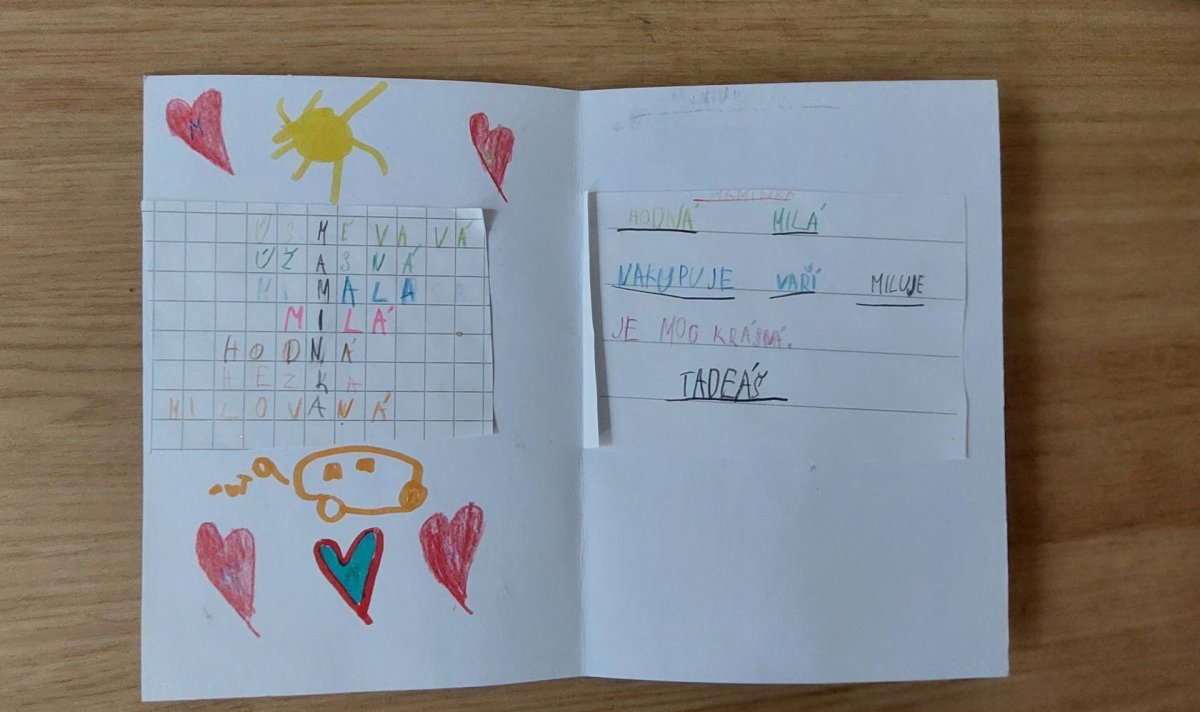 M
ÚSMĚVAVÁ
ÚŽASNÁ
MALÁ
MILÁ
HODNÁ
HEZKÁ
MILOVANÁ
HODNÁ MILÁ
NAKUPUJE VAŘÍ MILUJE
JE MOC KRÁSNÁ.
TADEÁŠ